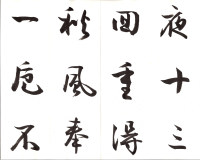 夜十三
回重得
秋風奉
一不